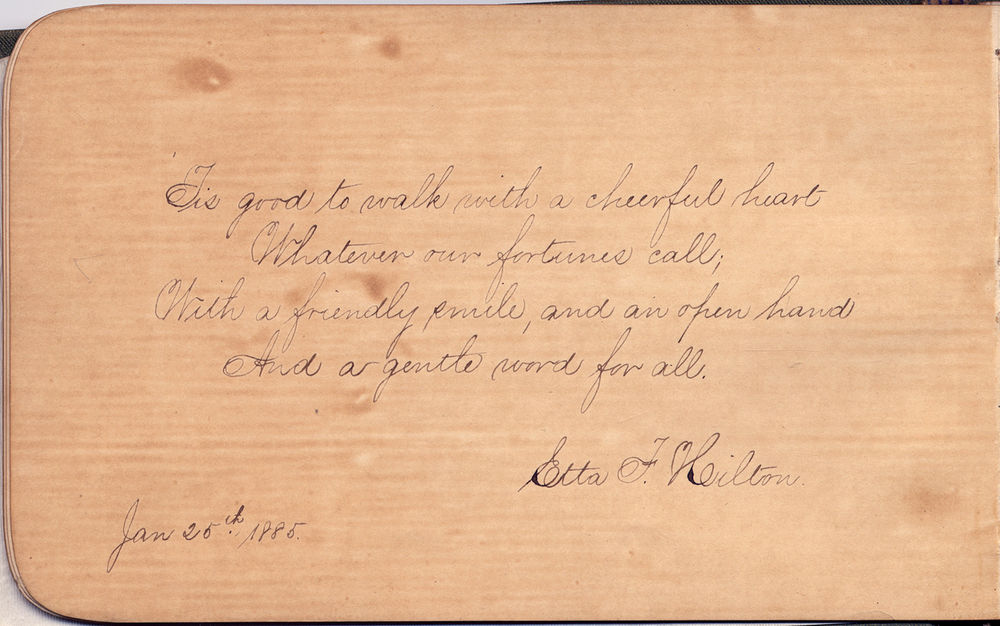 'Tis good to walk with a cheerful heart
Whatever our fortunes call;
With a friendly smile, and an open hand
And a gentle word for all.
Etta F. Hilton.
Jan 25th, 1885.